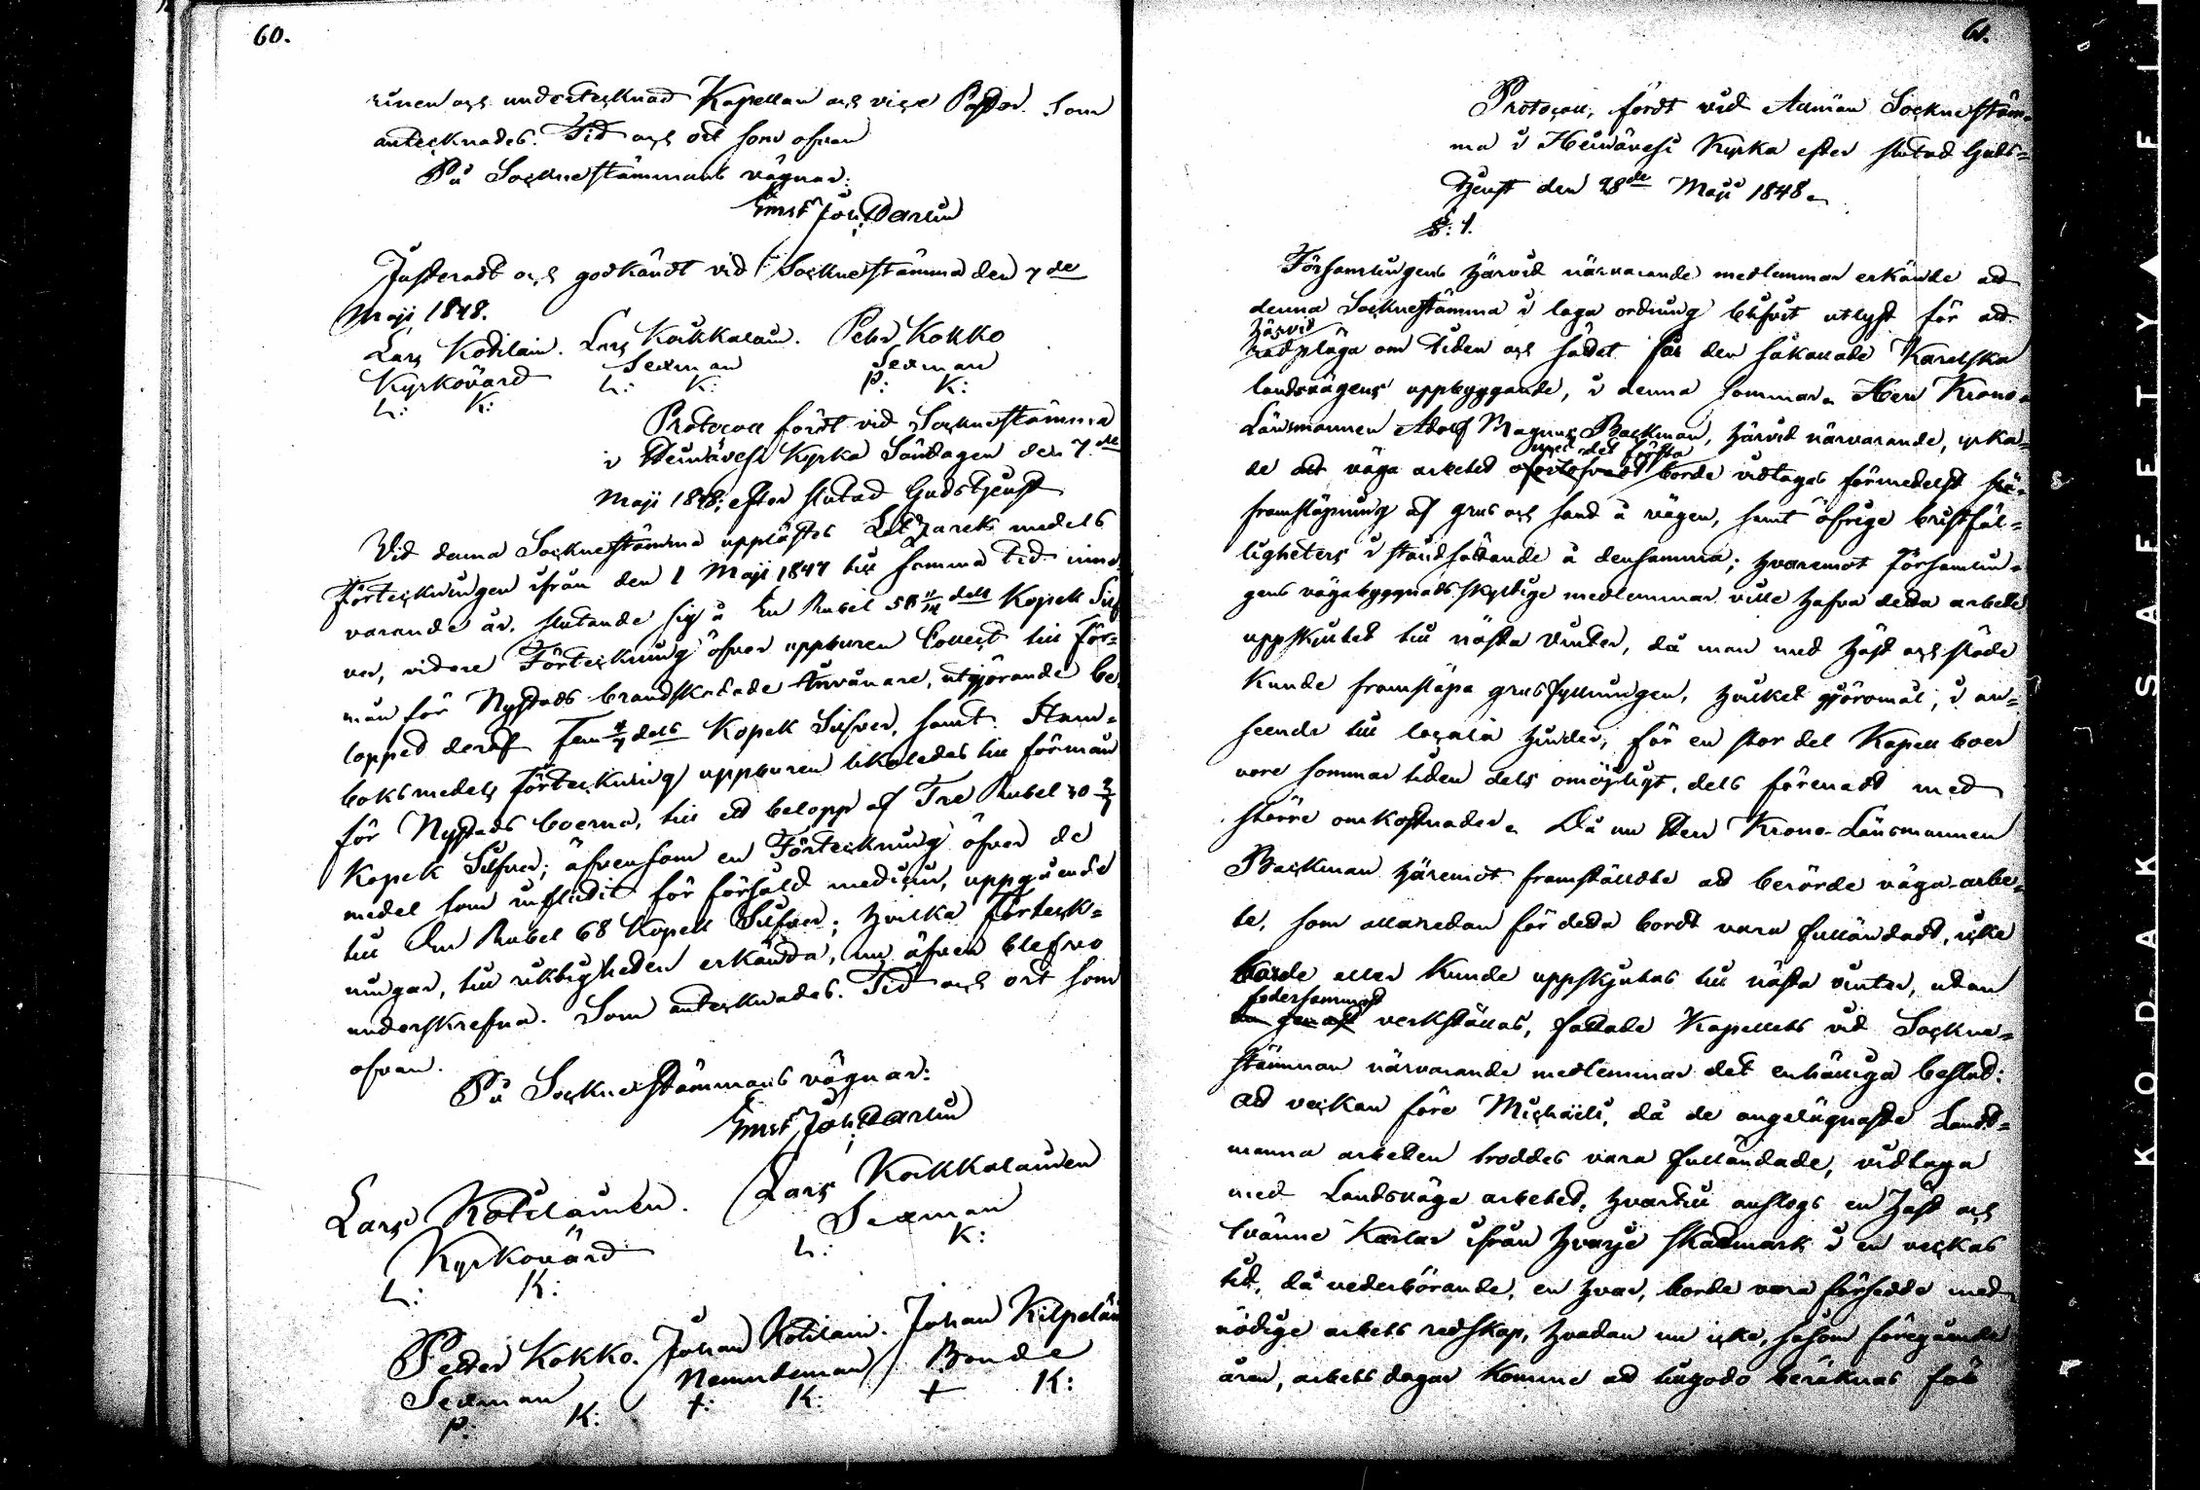 60.
rinen och undertecknad Kapellan och vice Pastor. Som
antecknades. Tid och ort som ofvan
På Sockne stämmans vägnar:
Ernst Joh: Darlin
Justeradt och godkändt vid Sockne stämma den 7de
Maji 1848.
Lars Kotilain. Lars Kaikkalain. Peter Kokko
Kyrkovärd Sexman Sexman
L: K: L: K: P: K:
Protocoll fördt vid Socknestämma
i Heinävesi Kyrka Söndagen den 7de
Maji 1848, efter slutad Gudstjenst
Vid denna Sockne stämma upplästes Lazarets medels
Förteckningen ifrån den 1 Maji 1847 till samma tid inne-
varande år, slutande sig å En Rubel 58 dels Kopek Silf
ver, vidare Förteckning öfver uppburen Collect till för-
mån för Nystads brandskadade Invånare, utgjörande be-
loppet deraf Fem 4/7 dels Kopek Silfver, samt Stam-
boks medels förteckning uppburen likaledes till förmån
för Nystads boerna, till ett belopp af Tre Rubel 30 2/7
Kopek Silfver; äfvensom en Förteckning öfver de
medel som influtit för försåld medicin, uppgående
till En Rubel 68 Kopek Silfver; hvilka förteck-
ningar, till riktigheten erkända, nu äfven blefvo
underskrefna. Som antecknades. Tid och ort som
ofvan.
På Sockne stämmans vägnar:
Ernst Joh: Darlin
Lars Kotilainen. Lars Kaikkalainen
Kyrkovärd Sexman
L: K: L: K:
Petter Kokko. Johan Kotilain. Johan Kilpeläin
Sexman Nämndeman Bonde
P: K: +: K: + K:
61.
Protocoll, fördt vid Allmän Socknestäm-
ma i Heinävesi Kyrka efter slutad Guds-
tjenst den 28de Maji 1848.
§: 1.
Församlingens härvid närvarande medlemmar erkände att
denna Socknestämma i laga ordning blifvit utlyst för att
härvid
rådpläga om tiden och sättet för den såkallade Karelska
landsvägens uppbyggande, i denna sommar. Herr Krono-
Länsmannen Adolf Magnus Backman, härvid närvarande, yrka-
med det första
de att väga arbetet ofortöfvadt borde vidtagas förmedelst
framsläpning af grus och sand å vägen, samt öfrige bristfäl-
ligheters i ståndsättande å densamma; hvaremot Församlin-
gens vägabyggnads skyldige medlemmar ville hafva detta arbete
uppskjutet till nästa vinter, då man med häst och släde
kunde framsläpa grusfyllningen, hvilket göromål, i an-
seende till locala hinder, för en stor del Kapell boer
vore sommar tiden dels omöjligt, dels förenadt med
större omkostnader. Då nu Herr Krono-Länsmannen
Backman häremot framställdte att berörde väga-arbe-
te, som allaredan för detta bordt vara fulländadt, icke
borde eller kunde uppskjutas till nästa vinter, utan
fodersammast
verkställas, fattade Kapellets vid Sockne-
stämman närvarande medlemmar det enhälliga beslut:
att veckan före Michaëli, då de angelägnaste Landt-
manna arbeten troddes vara fulländade, vidtaga
med Landsväga arbetet, hvartill anslogs en häst och
tvänne Karlar ifrån hvarje skattmark i en veckas
tid, då vederbörande, en hvar, borde vara försedde med
nödige arbets redskap, hvadan nu icke, såsom föregående
åren, arbets dagar komme att tillgodo beräknas för